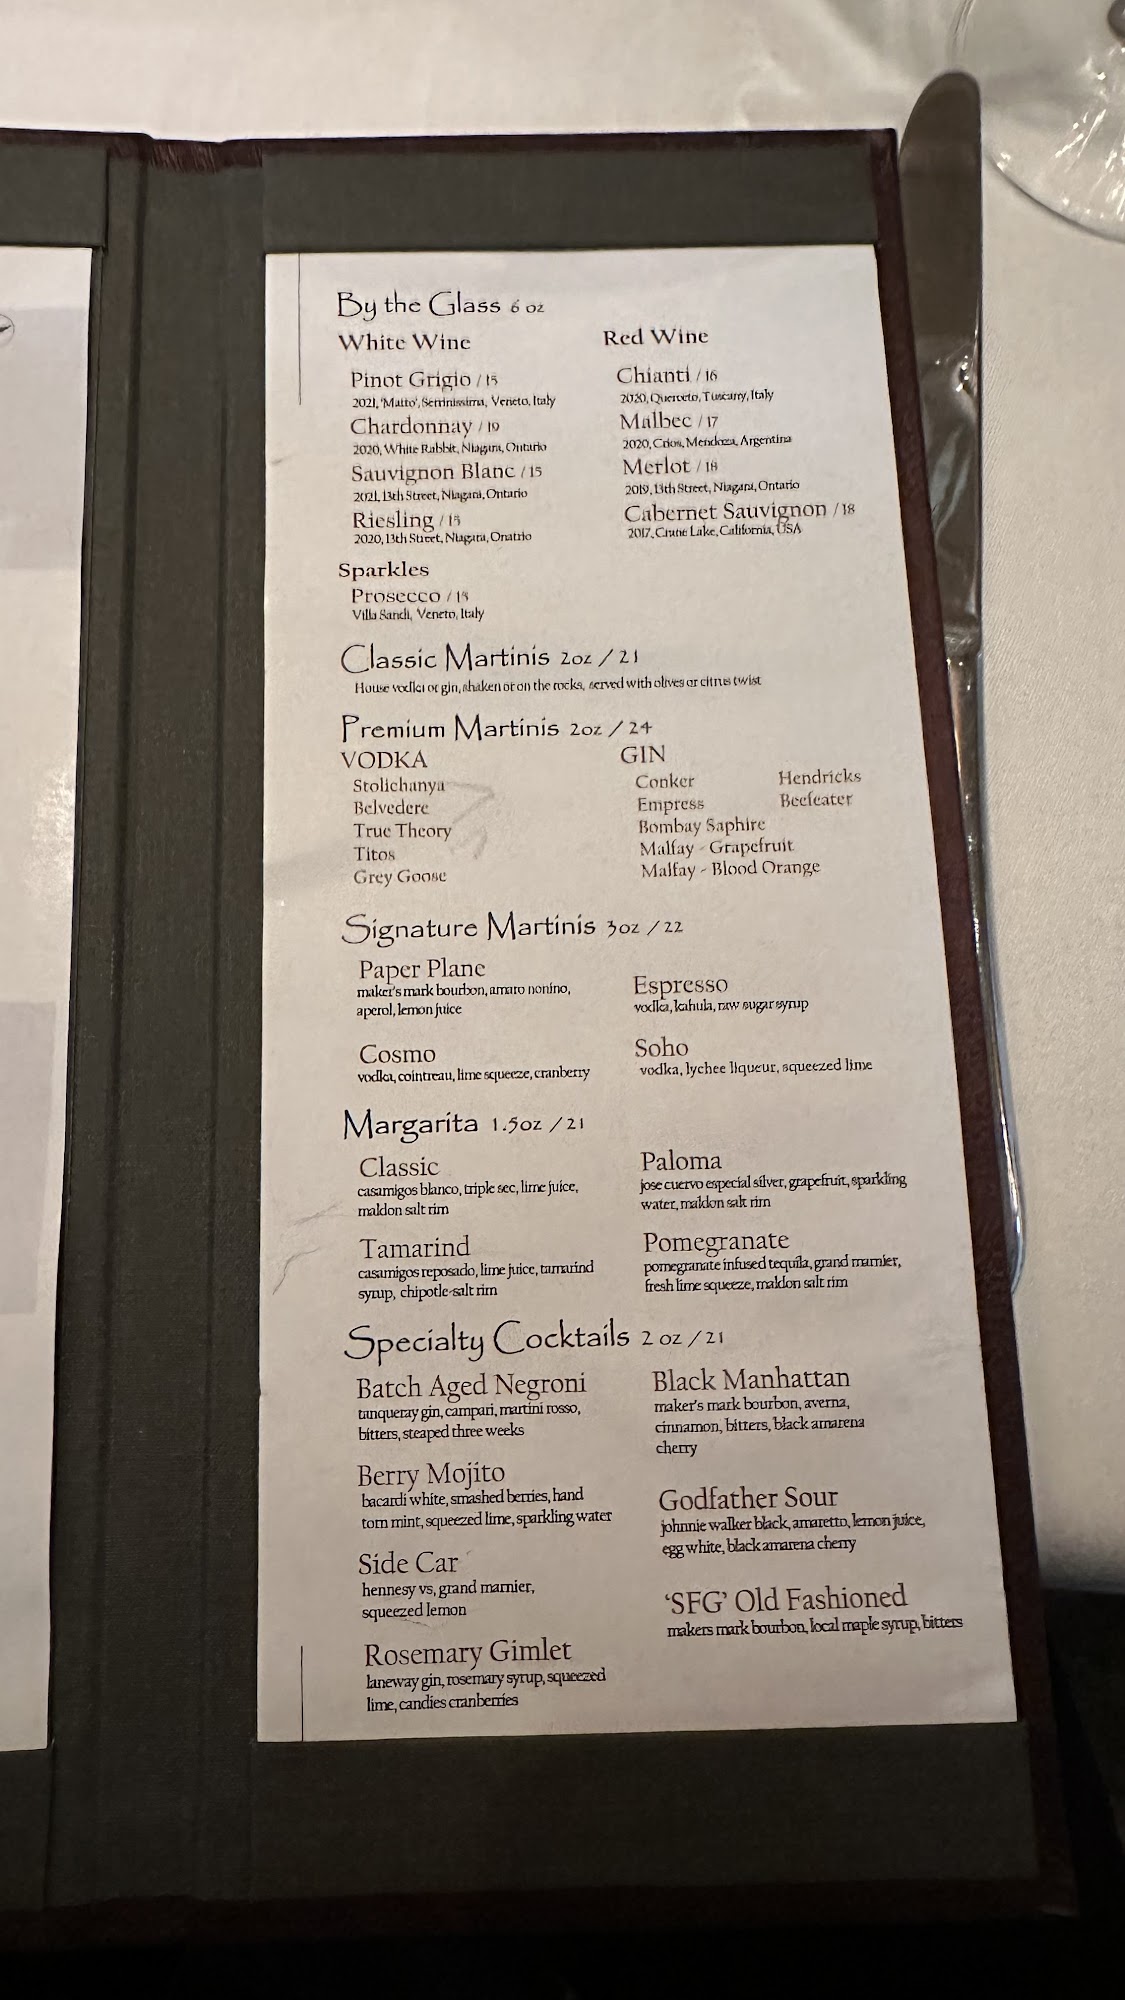 By the Glass 6 oz
White Wine
Pinot Grigio / 15
2021, 'Matto', Serenissima, Veneto, Italy
Chardonnay / 19
2020, White Rabbit, Niagara, Ontario
Sauvignon Blanc / 15
2021, 13th Street, Niagara, Ontario
Riesling / 15
2020, 13th Street, Niagara, Onatrio
Sparkles
Prosecco / 15
Villa Sandi, Veneto, Italy
Red Wine
Chianti / 16
2020, Querceto, Tuscany, Italy
Malbec / 17
2020, Crios, Mendoza, Argentina
Merlot / 18
2019, 13th Street, Niagara, Ontario
Cabernet Sauvignon / 18
2017, Crane Lake, California, USA
Classic Martinis 2oz / 21
House vodka or gin, shaken or on the rocks, served with olives or citrus twist
Premium Martinis 2oz / 24
VODKA
Stolichanya
Belvedere
True Theory
Titos
Grey Goose
GIN
Conker
Empress
Bombay Saphire
Malfay - Grapefruit
Malfay - Blood Orange
Hendricks
Beefeater
Signature Martinis 3oz / 22
Paper Plane
maker's mark bourbon, amaro nonino,
aperol, lemon juice
Cosmo
vodka, cointreau, lime squeeze, cranberry
Espresso
vodka, kahula, raw sugar syrup
Soho
vodka, lychee liqueur, squeezed lime
Margarita 1.5oz / 21
Classic
casamigos blanco, triple sec, lime juice,
maldon salt rim
Tamarind
casamigos reposado, lime juice, tamarind
syrup, chipotle-salt rim
Paloma
jose cuervo especial silver, grapefruit, sparkling
water, maldon salt rim
Pomegranate
pomegranate infused tequila, grand marnier,
fresh lime squeeze, maldon salt rim
Specialty Cocktails 2 oz / 21
Batch Aged Negroni
tanqueray gin, campari, martini rosso,
bitters, steaped three weeks
Berry Mojito
bacardi white, smashed berries, hand
torn mint, squeezed lime, sparkling water
Side Car
hennesy vs, grand marnier,
squeezed lemon
Rosemary Gimlet
laneway gin, rosemary syrup, squeezed
lime, candies cranberries
Black Manhattan
maker's mark bourbon, averna,
cinnamon, bitters, black amarena
cherry
Godfather Sour
johnnie walker black, amaretto, lemon juice,
egg white, black amarena cherry
'SFG' Old Fashioned
makers mark bourbon, local maple syrup, bitters